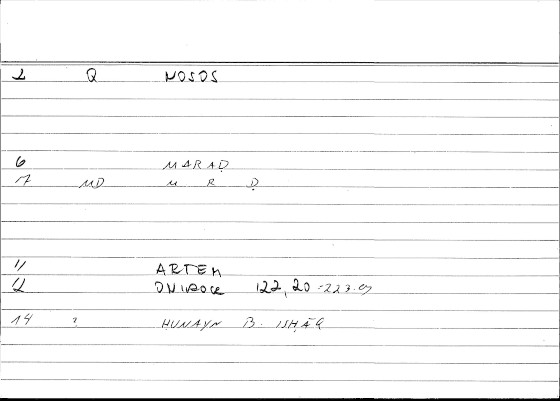 2 Q NOSOS
6 MARAḌ
7 MD M R Ḍ
11 ARTEM
12 ONIROCR 122,20 = 223.
14 ? HUNAYN B. ISHĀQ